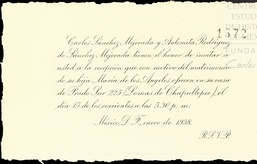 CENTRO
ESTUD
DE HISTO
1572
FUNDA
Carlos
Carlos Sánchez Mejorada y Antonieta Rodríguez
de Sánchez Mejorada tienen el honor de invitar a
usted a la recepción que con motivo del matrimonio
de su hija María de los Angeles, ofrecen en su casa
de Prado Sur 225 (Lomas de Chapultepec), el
día 15 de los corrientes a las 5.30 p. m.
México, D. F., enero de 1938.
R.S.V.P.